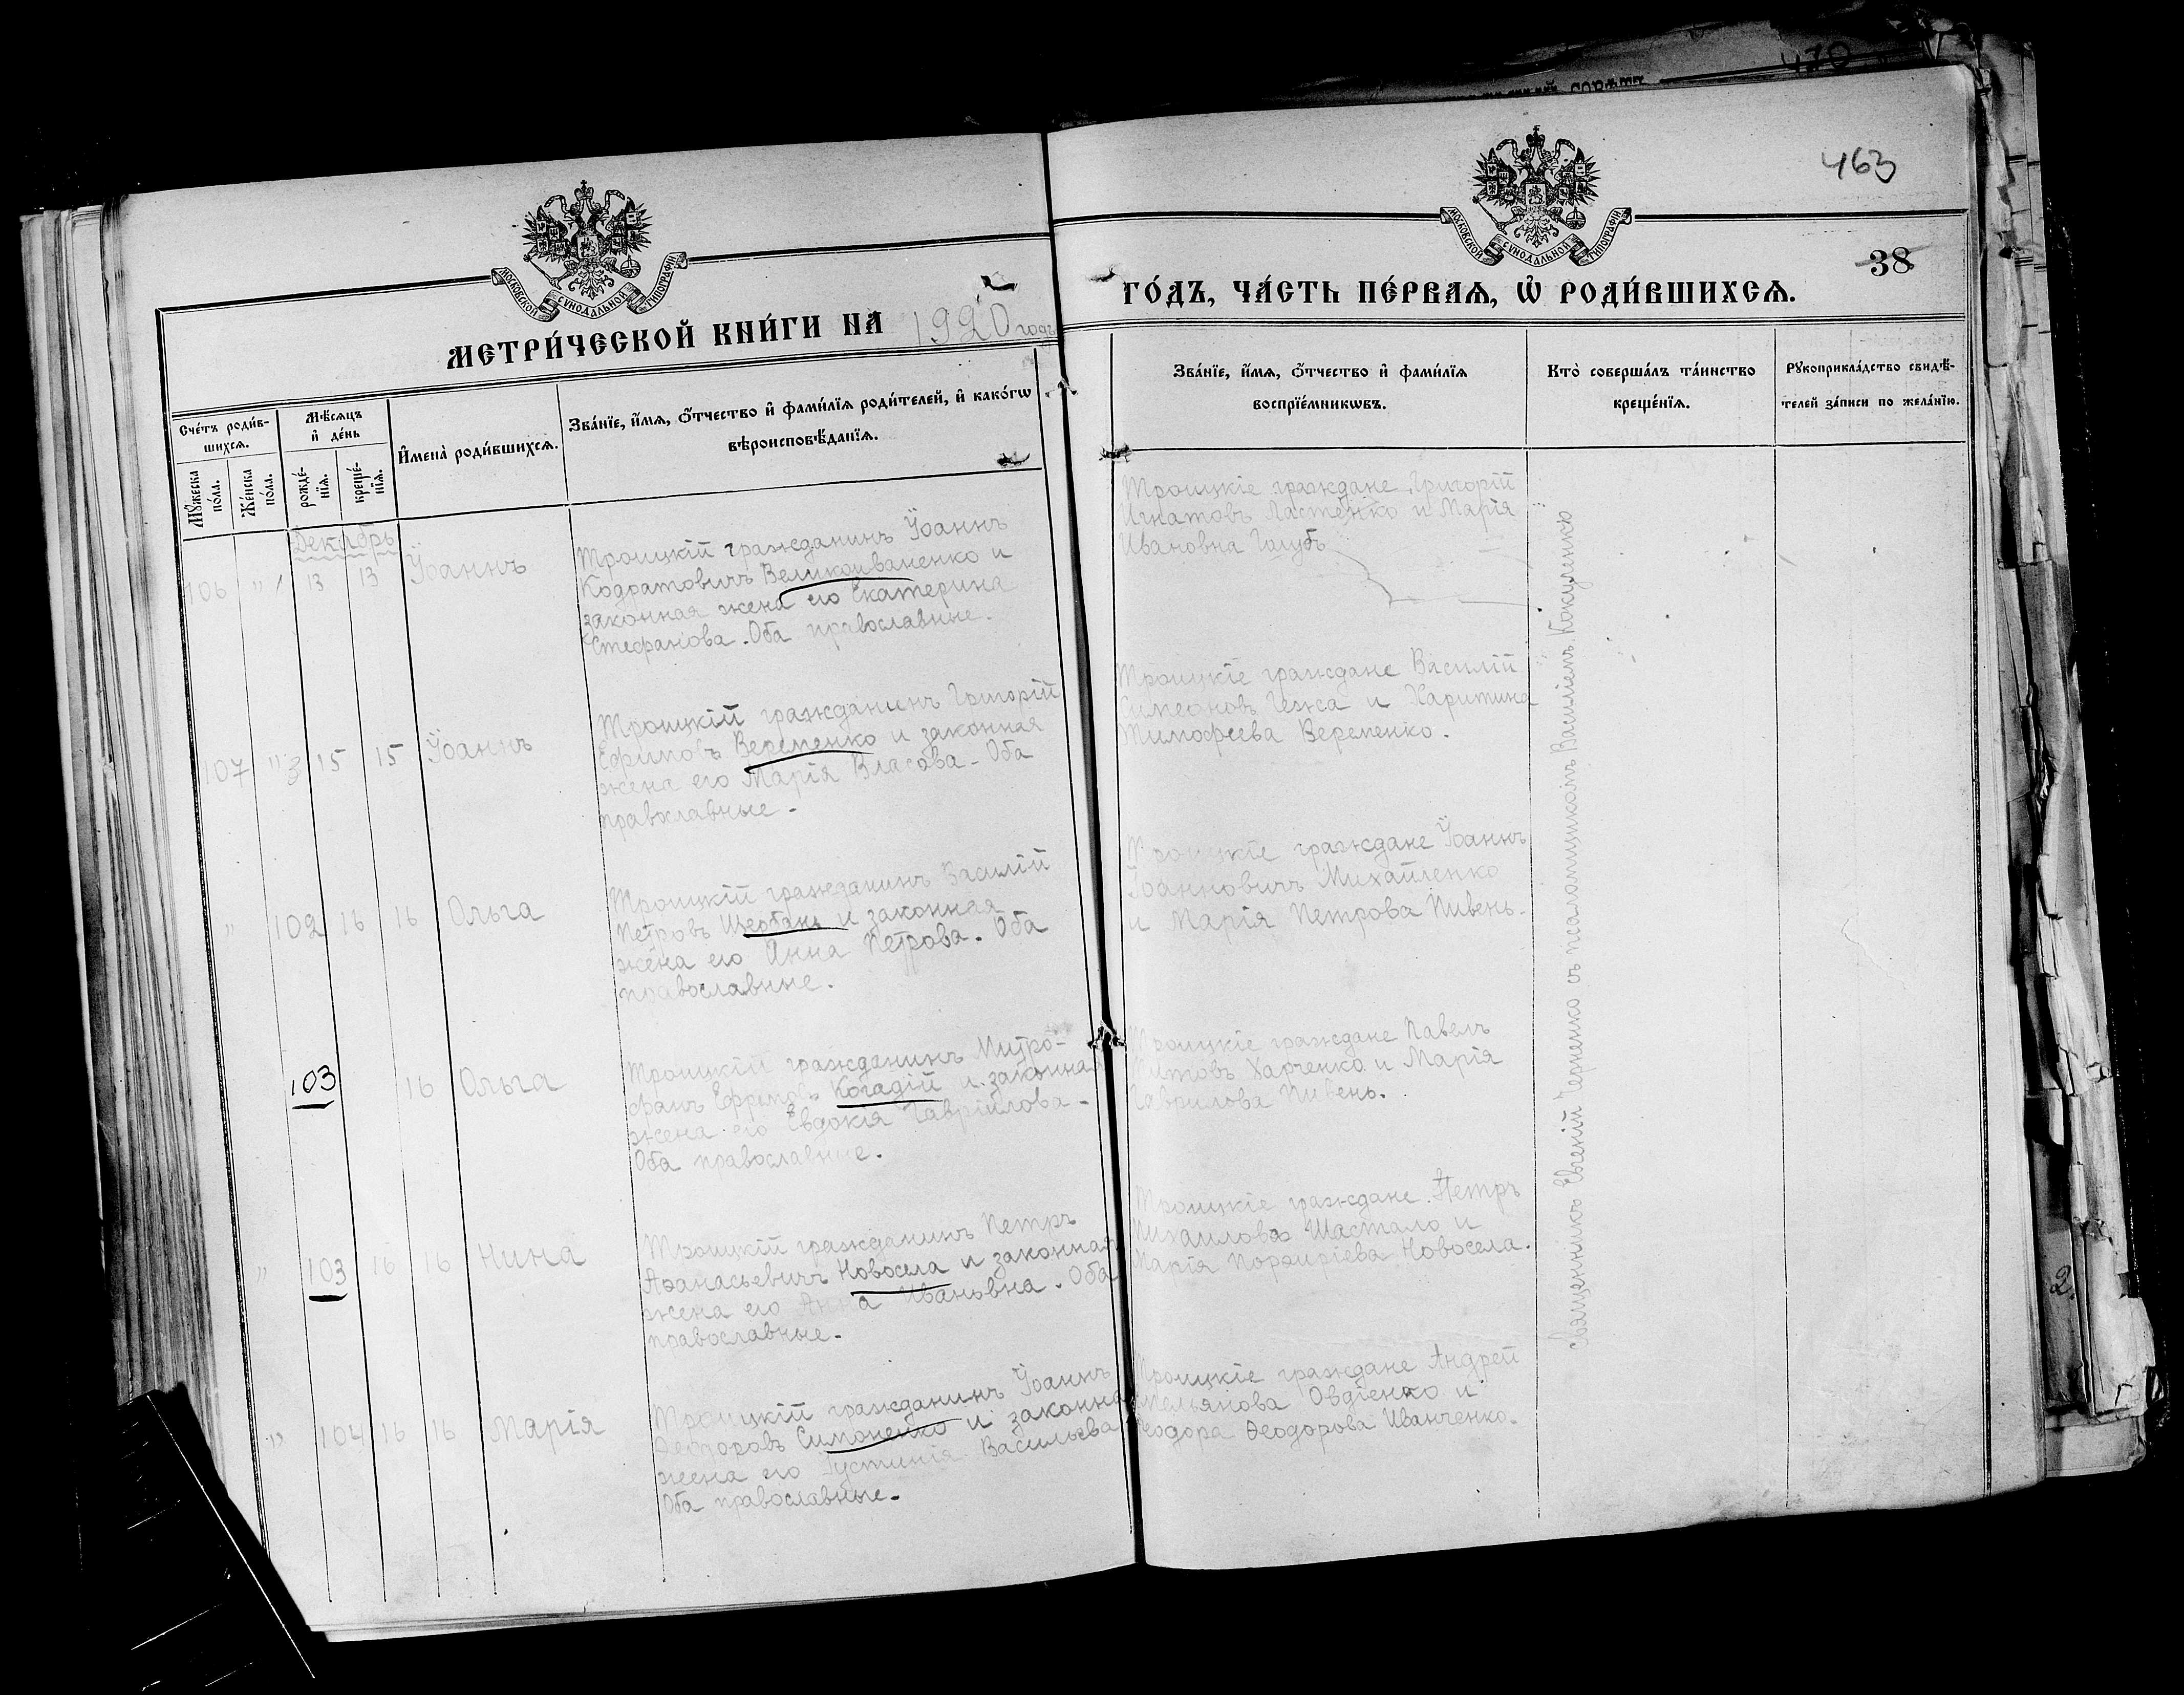 470
463
МОСКОВСКОЙ СѴНОДАЛЬНОЙ ТИПОГРАФІИ
МОСКОВСКОЙ СѴНОДАЛЬНОЙ ТИПОГРАФІИ
38
МЕТРИ́ЧЕСКОЙ КНИ́ГИ НА 1920 годъ
ГО́ДЪ, ЧА́СТЬ ПЕ́РВАѦ, Ѡ҆ РОДИ́ВШИХСѦ.
Сче́тъ роди́в-
шихсѧ.
Мꙋжеска по́ла.
Же́нска по́ла.
Мѣ́сѧцъ
и҆ де́нь
рожде́-
нїѧ.
креще́-
нїѧ.
И҆мена̀ роди́вшихсѧ.
Зва́нїе, и҆́мѧ, ѻ҆́тчество и҆ фами́лїѧ роди́телей, и҆ како́гѡ
вѣроисповѣ́данїѧ.
Зва́нїе, и҆́мѧ, ѻ҆́тчество и҆ фами́лїѧ
воспрїе́мникѡвъ.
Кто̀ соверша́лъ та́инство
креще́нїѧ.
Рꙋкоприкла́дство свидѣ́-
телей за́писи по жела́нїю.
Декабрь
106 " 13 13 Іоаннъ
Троицкій гражданинъ Іоаннъ
Кодратовичъ Великоиваненко и
законная жена его Екатерина
Стефанова. Оба православные.
Троицкіе граждане Григорій
Игнатовъ Ластенко и Марія
Ивановна Голубъ
107 " 15 15 Іоаннъ
Троицкій гражданинъ Григорій
Ефимовъ Веременко и законная
жена его Марія Власова. Оба
православные.
Троицкіе граждане Василій
Симеоновъ Гежса и Харитина
Тимофеева Веременко.
" 102 16 16 Ольга
Троицкій гражданинъ Василій
Петровъ Щербань и законная
жена его Анна Петрова. Оба
православные.
Троицкіе граждане Іоаннъ
Іоанновичъ Михайленко
и Марія Петрова Пивень.
103 16 Ольга
Троицкій гражданинъ Митро-
фанъ Ефремовъ Когадій и законная
жена его Евдокія Гавріилова.
Оба православные.
Троицкіе граждане Павелъ
Титовъ Харченко и Марія
Гаврилова Пивень.
" 103 16 16 Нина
Троицкій гражданинъ Петръ
Афанасьевичъ Новосела и законная
жена его Анна Ивановна. Оба
православные.
Троицкіе граждане Петръ
Михаиловъ Шастало и
Марія Порфиріева Новосела.
" 104 16 16 Марія
Троицкій гражданинъ Іоаннъ
Ѳеодоровъ Симоненко и законна
жена его Іустинія Васильева
Оба православные.
Троицкіе граждане Андрей
Емельянова Овдіенко и
Ѳеодора Ѳеодорова Иванченко.
Священникъ Евгеній Черненко съ псаломщикомъ Василіемъ Кокуленкю
2.